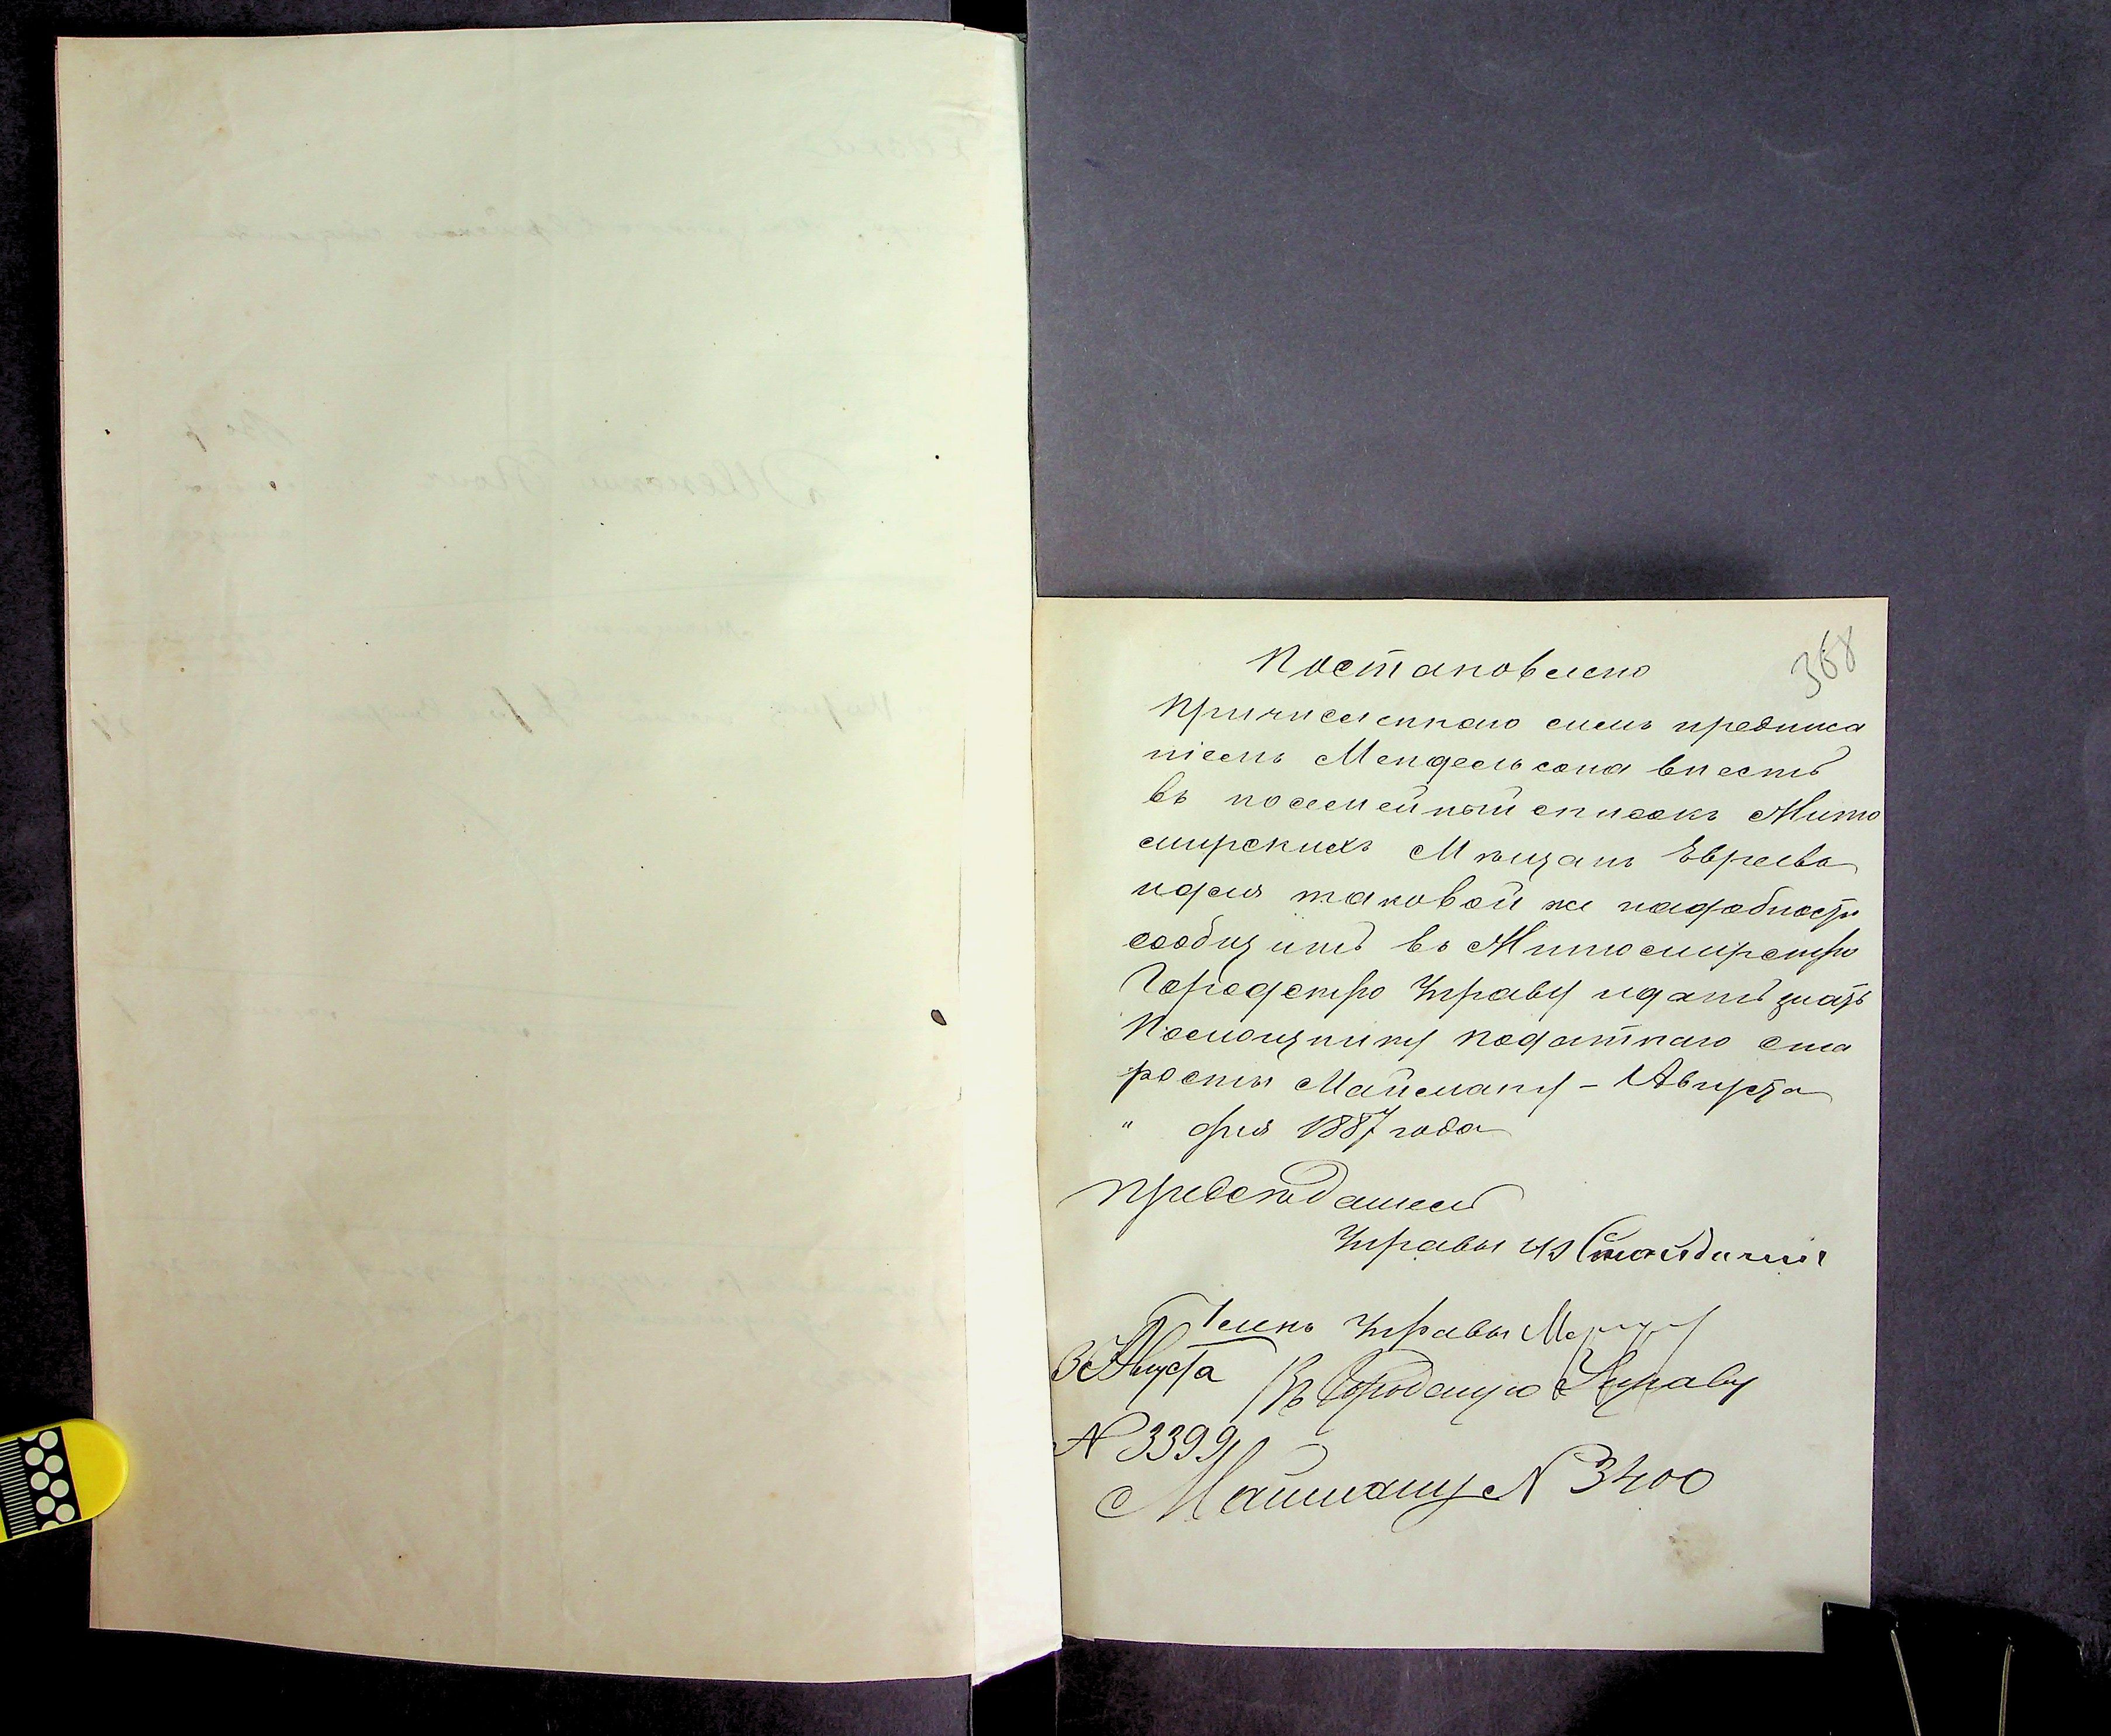 368
Постановлено
Причисленнаго симъ предписа
ніемъ Мендельсона внесть
въ посемейный списокъ Жито
мирскихъ Мѣщанъ Евреевъ
идля таковой же надобности
сообщить въ Житомирскую
Городскую Управу идать знать
Помощнику податнаго ста
росты Майзману – Августа
" дня 1887 года
Предсѣдатель
Управы
Членъ Управы
3 Августа Въ Городскую Управу
№ 3399
Майзману № 3400